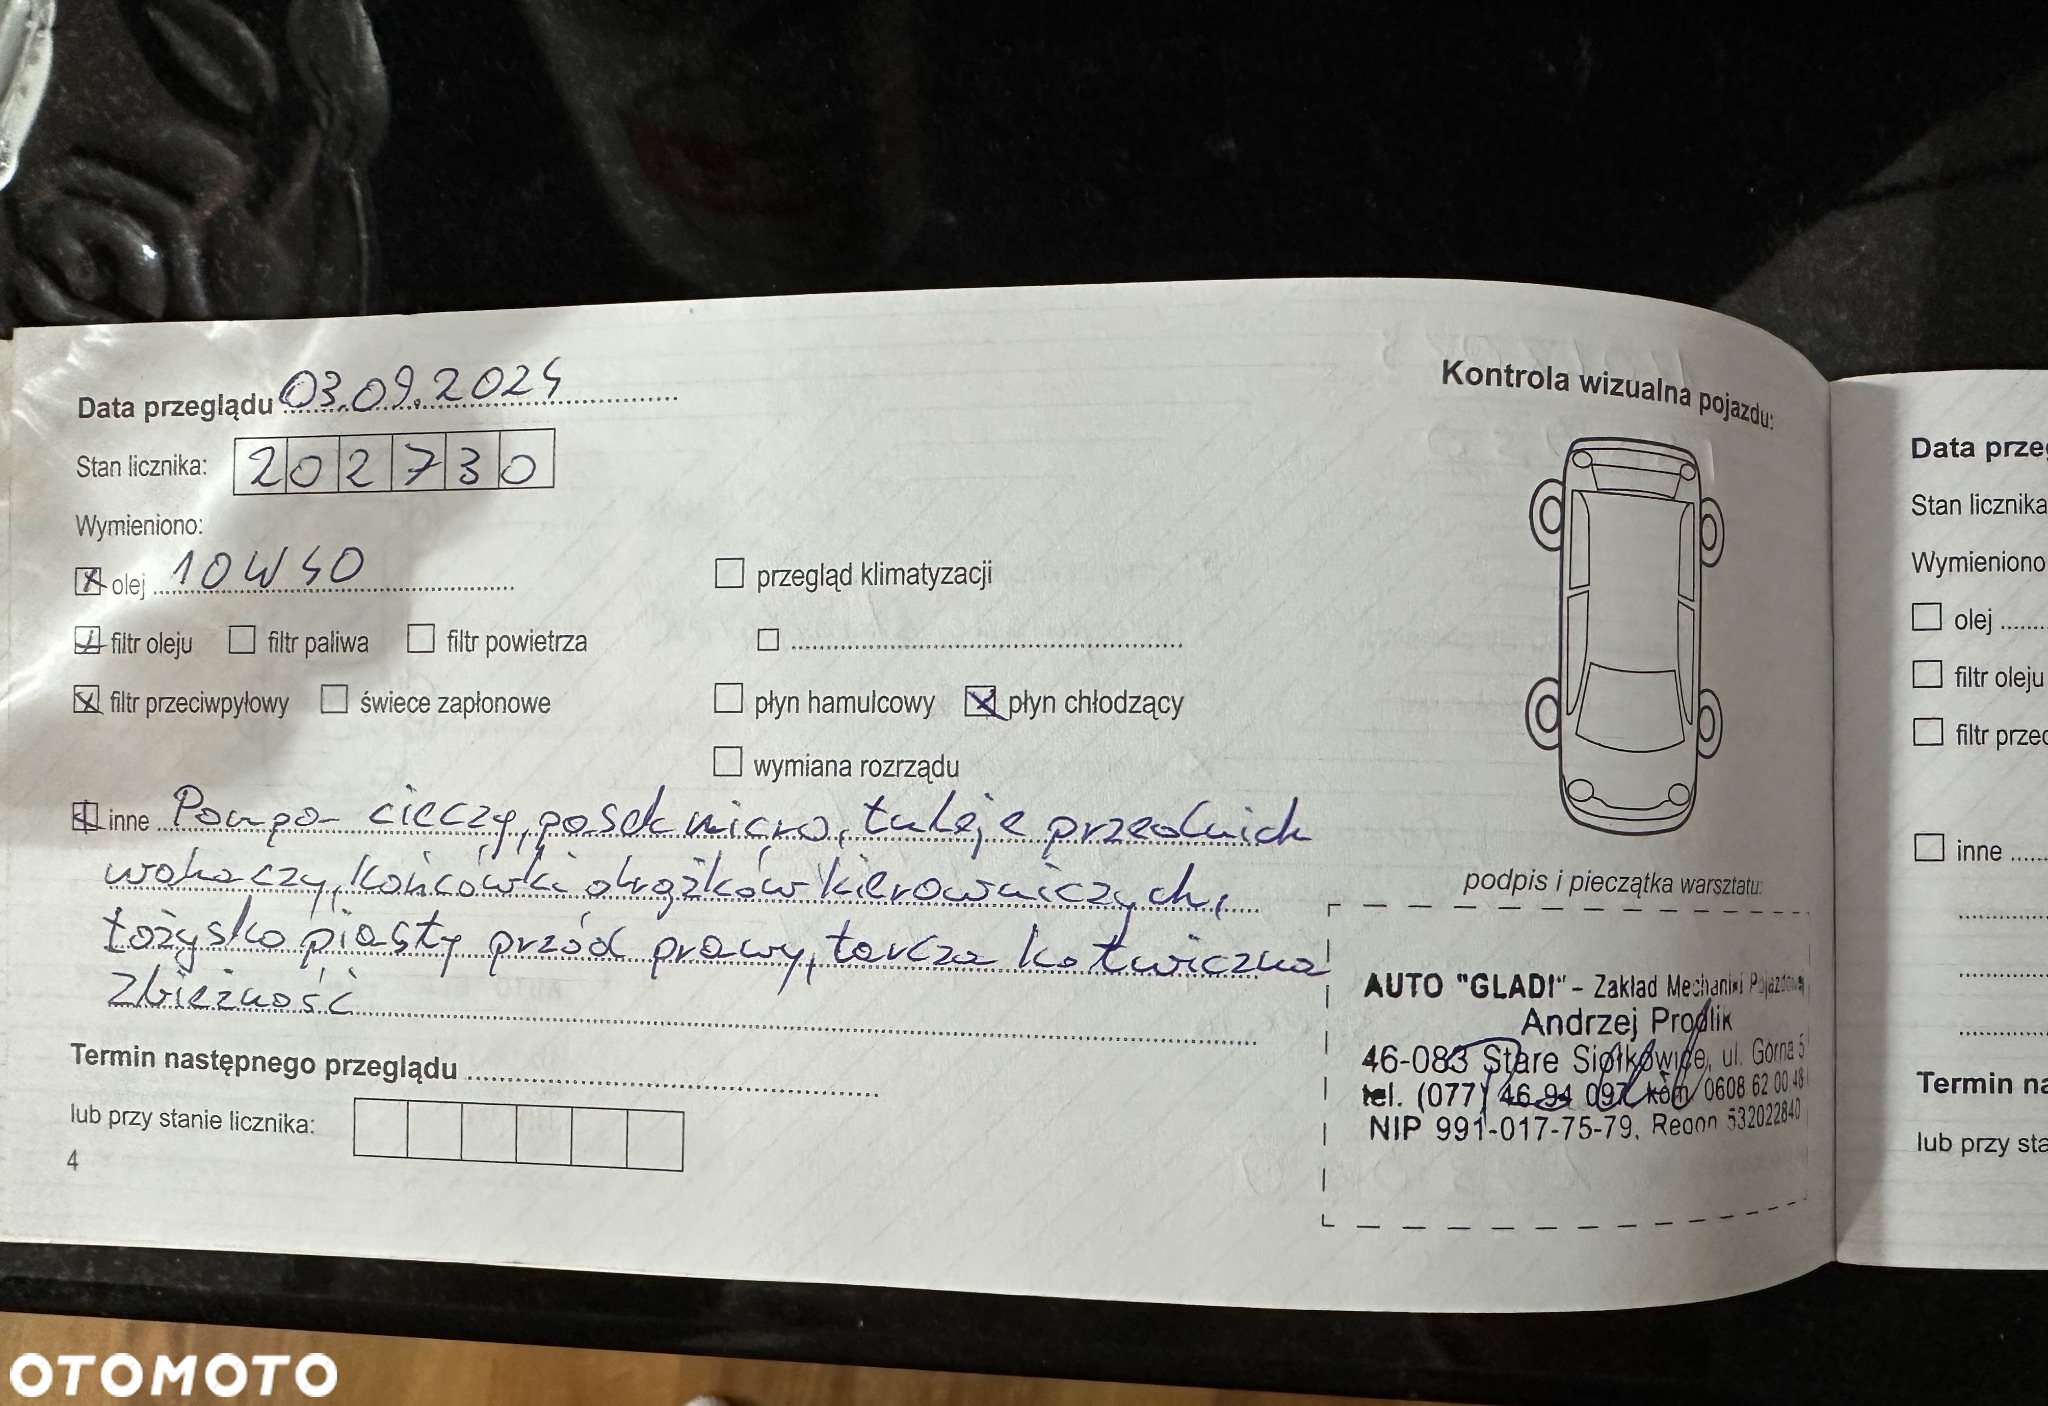 Data przeglądu 03.09.2024
Stan licznika: 202730
Wymieniono:
olej 10W40
przegląd klimatyzacji
filtr oleju filtr paliwa filtr powietrza
filtr przeciwpyłowy świece zapłonowe
płyn hamulcowy płyn chłodzący
wymiana rozrządu
inne Pompa cieczy, pasek micro, tuleje przednich
wahaczy, końcówki drążków kierowniczych,
łożysko piasty przód prawy, tarcza kotwiczna
Zbieżność
Termin następnego przeglądu
lub przy stanie licznika:
4
Kontrola wizualna pojazdu:
podpis i pieczątka warsztatu:
AUTO "GLADI" - Zakład Mechaniki Pojazdowej
Andrzej Prodlik
46-083 Stare Siołkowice, ul. Górna 5
tel. (077) 46 94 097, kom. 0608 62 00 48
NIP 991-017-75-79, Regon 532022840
Data prze
Stan licznika
Wymieniono
olej
filtr oleju
filtr przec
inne
Termin na
lub przy sta
OTOMOTO